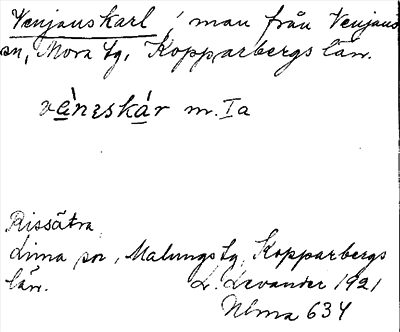 Venjanskarl, man från Venjans
sn, Mora tg, Kopparbergs län.
vèneskár m. Ia
Rissätra
Lima sn, Malungs tg, Kopparbergs
län. L. Levander 1921
Nbma 634